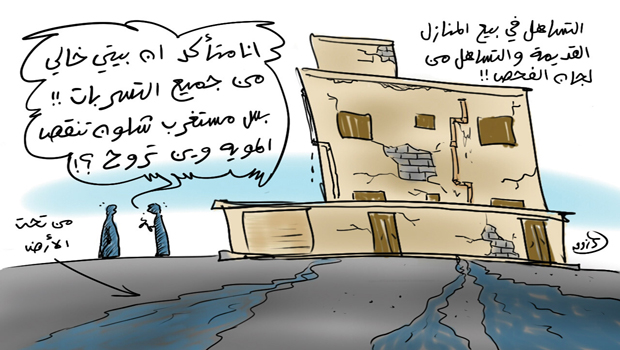 التساهل في بيع المنازل
القديمة والتساهل من
لجان الفحص !!
انا متأكد ان بيتي خالي
من جميع التسربات !!
بس مستغرب شلون تنقص
المويه وين تروح ؟!
من تحت
الأرض